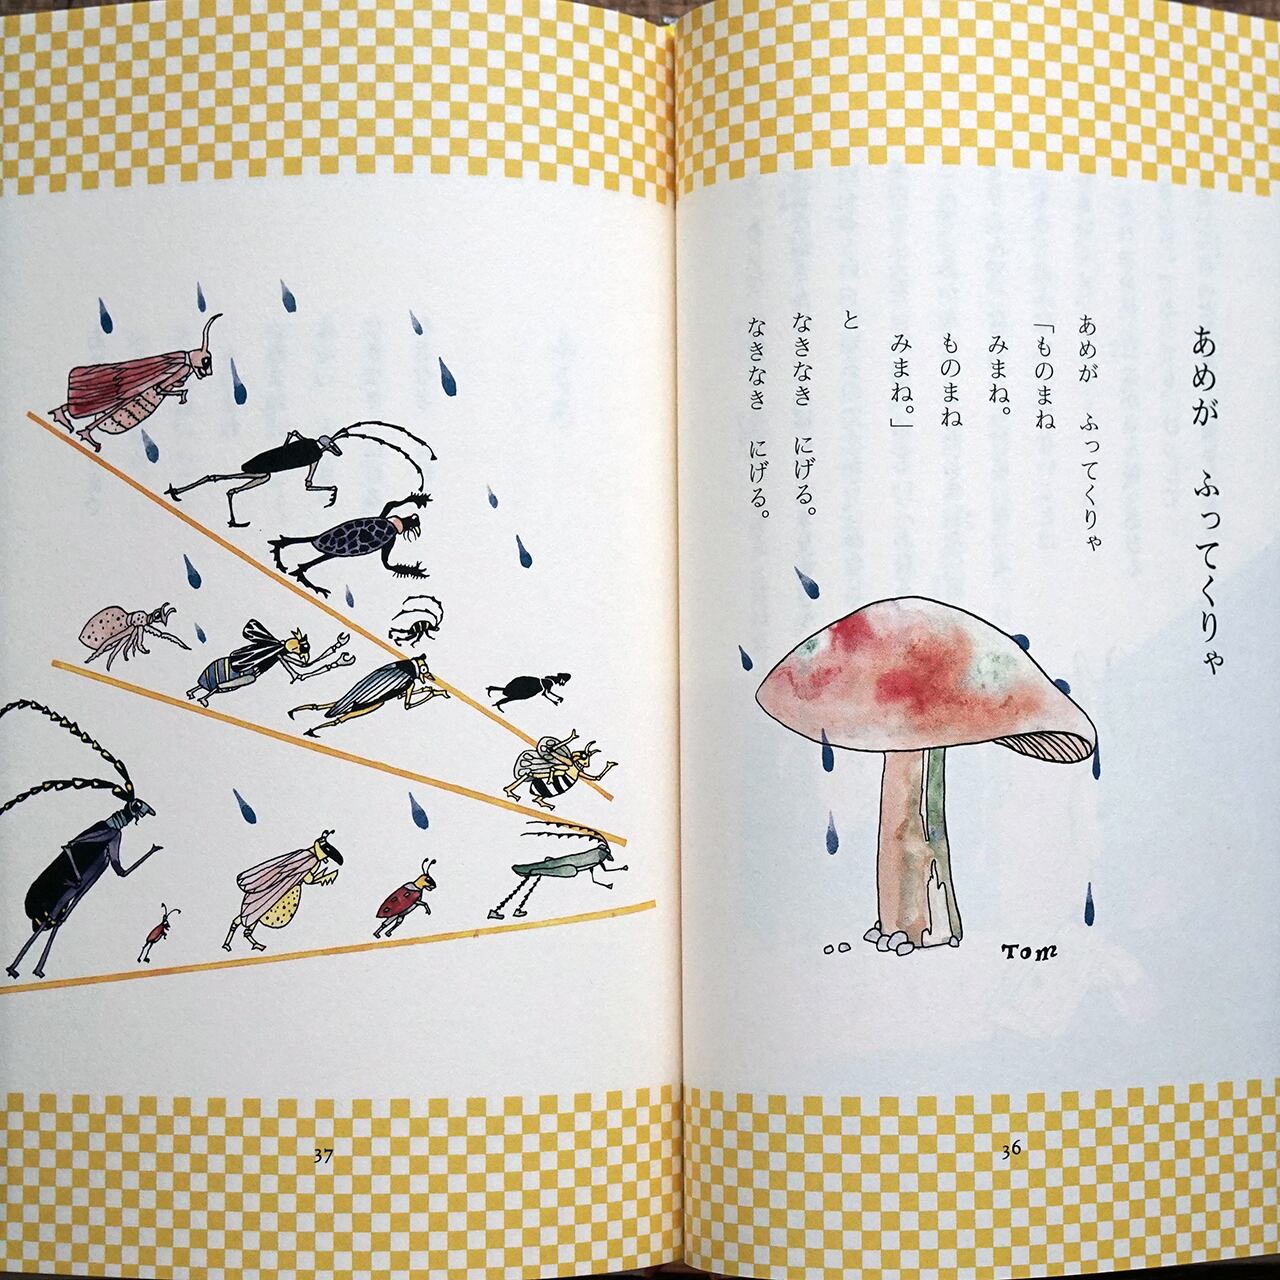 あめが　ふってくりゃ
あめが　ふってくりゃ
「ものまね
みまね。
ものまね
みまね。」
と
なきなき　にげる。
なきなき　にげる。
Tom
36
37